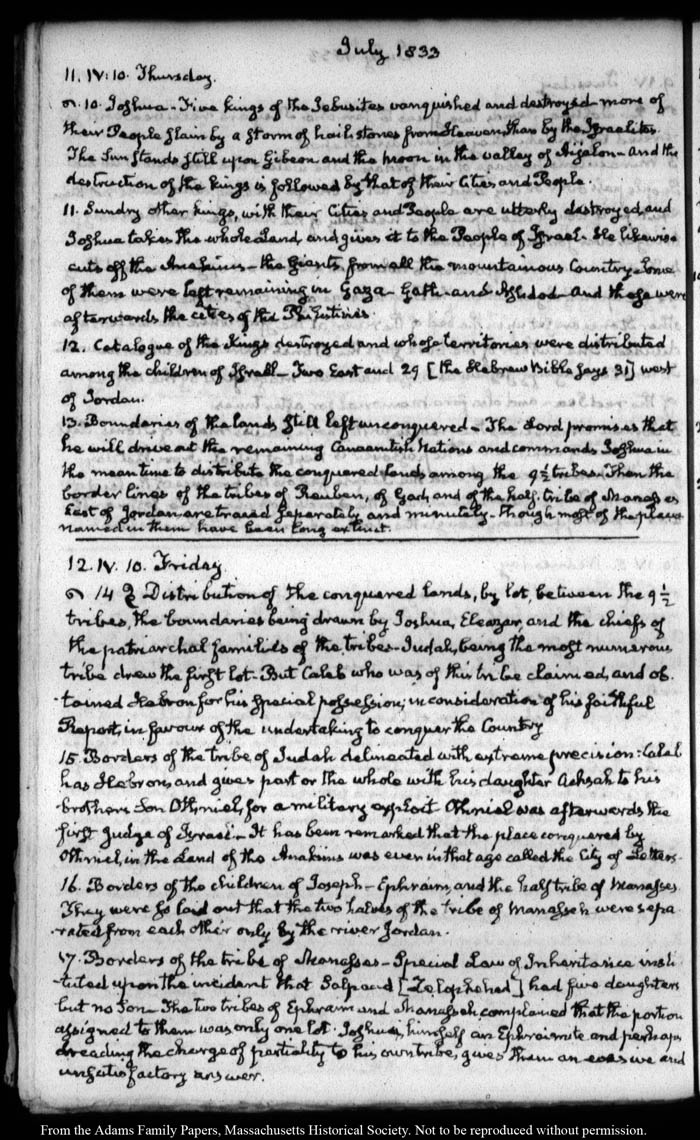 July 1833
11. IV:10. Thursday.
10. Joshua - Five kings of the Jebusites vanquished and destroyed - more of
their People slain by a storm of hail stones from Heaven than by the Israelites.
The Sun stands still upon Gibeon and the moon in the valley of Aijalon - and the
destruction of the kings is followed by that of their Cities and People.
11. Sundry other kings, with their Cities and People are utterly destroyed, and
Joshua takes the whole Land, and gives it to the People of Israel - He likewise
cuts off the Anakims - the Giants, from all the mountainous Country - Some
of them were left remaining in Gaza - Gath - and Ashdod - and these were
afterwards the cities of the Philistines.
12. Catalogue of the Kings destroyed and whose territories were distributed
among the children of Israel - Two East and 29 [the Hebrew Bible says 31] west
of Jordan.
13. Boundaries of the lands still left unconquered - The Lord promises that
he will drive out the remaining Canaanitish Nations and commands Joshua in
the mean time to distribute the conquered lands among the 9½ tribes. Then the
border lines of the tribes of Reuben, of Gad, and of the half-tribe of Manasses
East of Jordan are traced separately and minutely - though most of the places
named in them have been long extinct.
12. IV. 10. Friday
14 Distribution of the conquered lands, by lot, between the 9½
tribes, the boundaries being drawn by Joshua, Eleazar, and the chiefs of
the patriarchal families of the tribes - Judah, being the most numerous
tribe drew the first lot - But Caleb who was of this tribe claimed, and ob-
tained Hebron for his special possession, in consideration of his faithful
Report, in favour of the undertaking to conquer the Country
15. Borders of the tribe of Judah delineated with extreme precision: Caleb
has Hebron, and gives part or the whole with his daughter Achsah to his
brothers Son Othniel, for a military exploit Othniel was afterwards the
first Judge of Israel - It has been remarked that the place conquered by
Othniel, in the Land of the Anakims was even in that age called the City of Letters.
16. Borders of the children of Joseph - Ephraim, and the half tribe of Manasses.
They were so laid out that the two halves of the tribe of Manasseh were sepa-
rated from each other only by the river Jordan.
17. Borders of the tribe of Manasses - Special Law of Inheritance insti-
tuted upon the incident that Salpaad [Zelophehad] had five daughters
but no Son - The two tribes of Ephraim and Manasseh complained that the portion
assigned to them was only one lot. Joshua, himself an Ephraimite and perhaps
dreading the charge of partiality to his own tribe, gives them an evasive and
unsatisfactory answer.
From the Adams Family Papers, Massachusetts Historical Society. Not to be reproduced without permission.